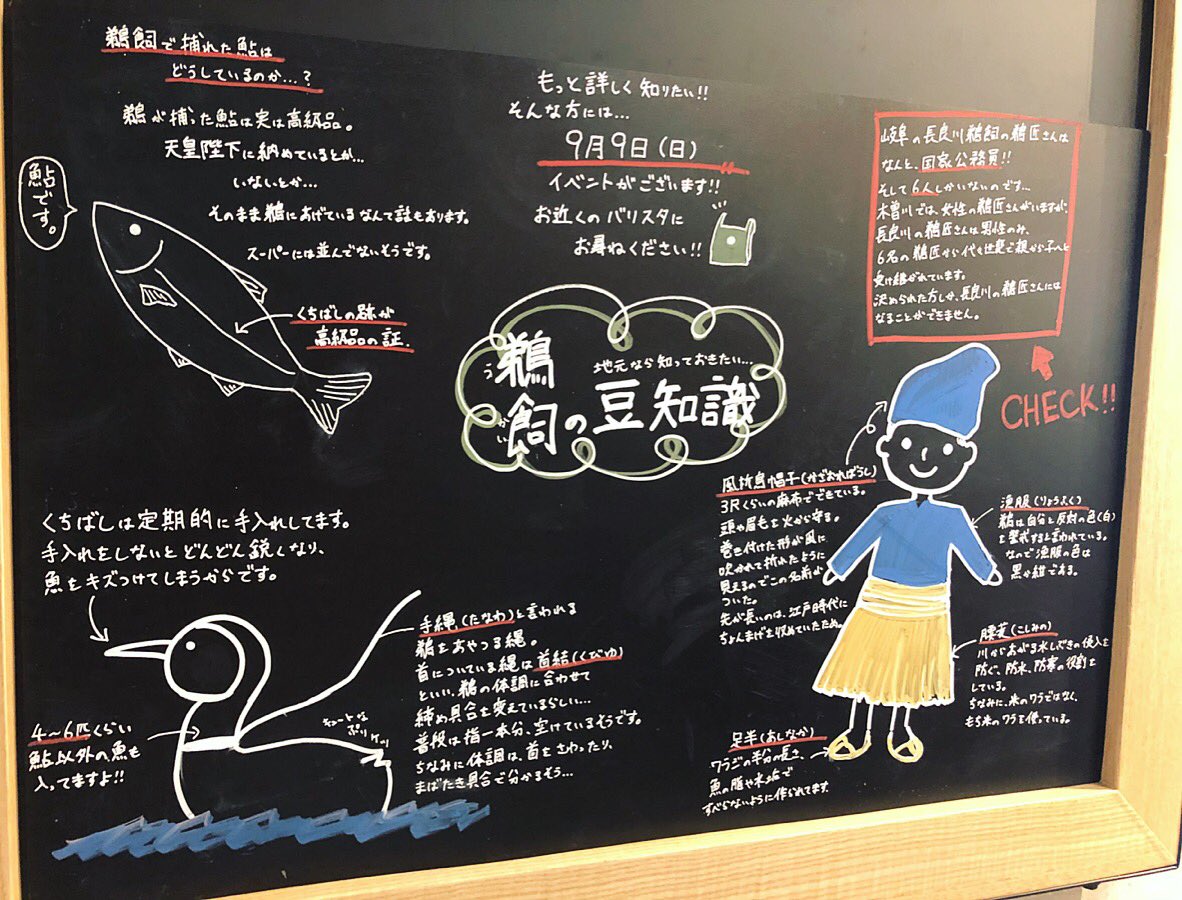 鵜飼で捕れた鮎は
どうしているのか…？
鵜が捕った鮎は実は高級品。
天皇陛下に納めているとか…
いないとか…
そのまま鵜にあげているなんて話もあります。
スーパーには並んでないそうです。
鮎です。
くちばしの跡が
高級品の証.
もっと詳しく知りたい!!
そんな方には…
9月9日(日)
イベントがございます!!
お近くのバリスタに
お尋ねください!!
岐阜の長良川鵜飼の鵜匠さんは
なんと、国家公務員!!
そして6人しかいないのです…
木曽川では、女性の鵜匠さんがいますが、
長良川の鵜匠さんは男性のみ、
6名の鵜匠から代々世襲で親から子へと
受け継がれています。
決められた方しか、長良川の鵜匠さんには
なることができません。
CHECK!!
地元なら知っておきたい…
鵜飼の豆知識
う
かい
くちばしは定期的に手入れしてます。
手入れをしないとどんどん鋭くなり、
魚をキズつけてしまうからです。
4〜6匹くらい
鮎以外の魚も
入ってますよ!!
手縄(たなわ)と言われる
鵜をあやつる縄。
首についている縄は首結(くびゆ)
といい、鵜の体調に合わせて
締め具合を変えているらしい…
普段は指一本分、空けているそうです。
ちなみに体調は、首をさわったり、
まばたき具合で分かるそう…
キュートな
ぷりケツ
風折烏帽子(かざおれぼうし)
3Rくらいの麻布でできている。
頭や眉毛を火から守る。
巻き付けた形が風に
吹かれて折れたように
見えるのでこの名前が
ついた。
先が長いのは、江戸時代に
ちょんまげを収めていたため。
漁服(りょうふく)
鵜は自分と反対の色(白)
を警戒すると言われている。
なので漁服の色は
黒か紺である。
腰蓑(こしみの)
川からあがる水しぶきの侵入を
防ぐ、防水、防寒の役割を
している。
ちなみに、米のワラではなく、
もち米のワラを使っている。
足半(あしなか)
ワラジの半分の長さ、
魚の脂や水垢で
すべらないように作られてます.